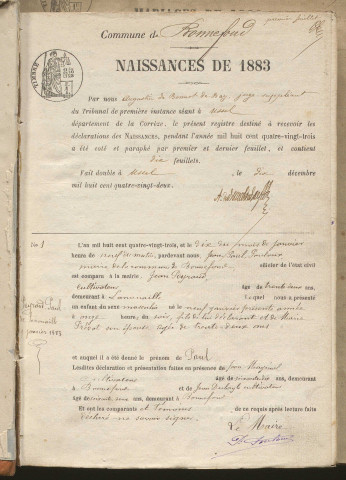 premier feuillet
Commune de Bonnefond
NAISSANCES DE 1883
Par nous Augustin juge suppléant
du tribunal de première instance séant à Ussel
département de la Corrèze, le présent registre destiné à recevoir les
déclarations des NAISSANCES, pendant l'année mil huit cent quatre-vingt-trois
a été coté et paraphé par premier et dernier feuillet, et contient
dix feuillets.
Fait double à Ussel, le dix décembre
mil huit cent quatre-vingt-deux.
No 1
L'an mil huit cent quatre-vingt-trois, et le dix du mois de janvier
heure de neuf du matin, pardevant nous Jean Paul
maire de la commune de Bonnefond officier de l'état civil
est comparu à la mairie Jean
cultivateur âgé de trente deux ans,
demeurant à Lequel nous a présenté
un enfant du sexe masculin né le neuf janvier présente année
à onze heures du soir, fils de lui déclarant et de Marie
son épouse âgée de trente deux ans
Paul
janvier 1883
et auquel il a été donné le prénom de Paul
Lesdites déclaration et présentation faites en présence de Jean
cultivateur âgé de ans, demeurant
à Bonnefond et de Jean cultivateur
âgé de ans, demeurant à Bonnefond
Et ont les comparants et témoins de ce requis après lecture faite
déclaré ne savoir signer.
Le Maire